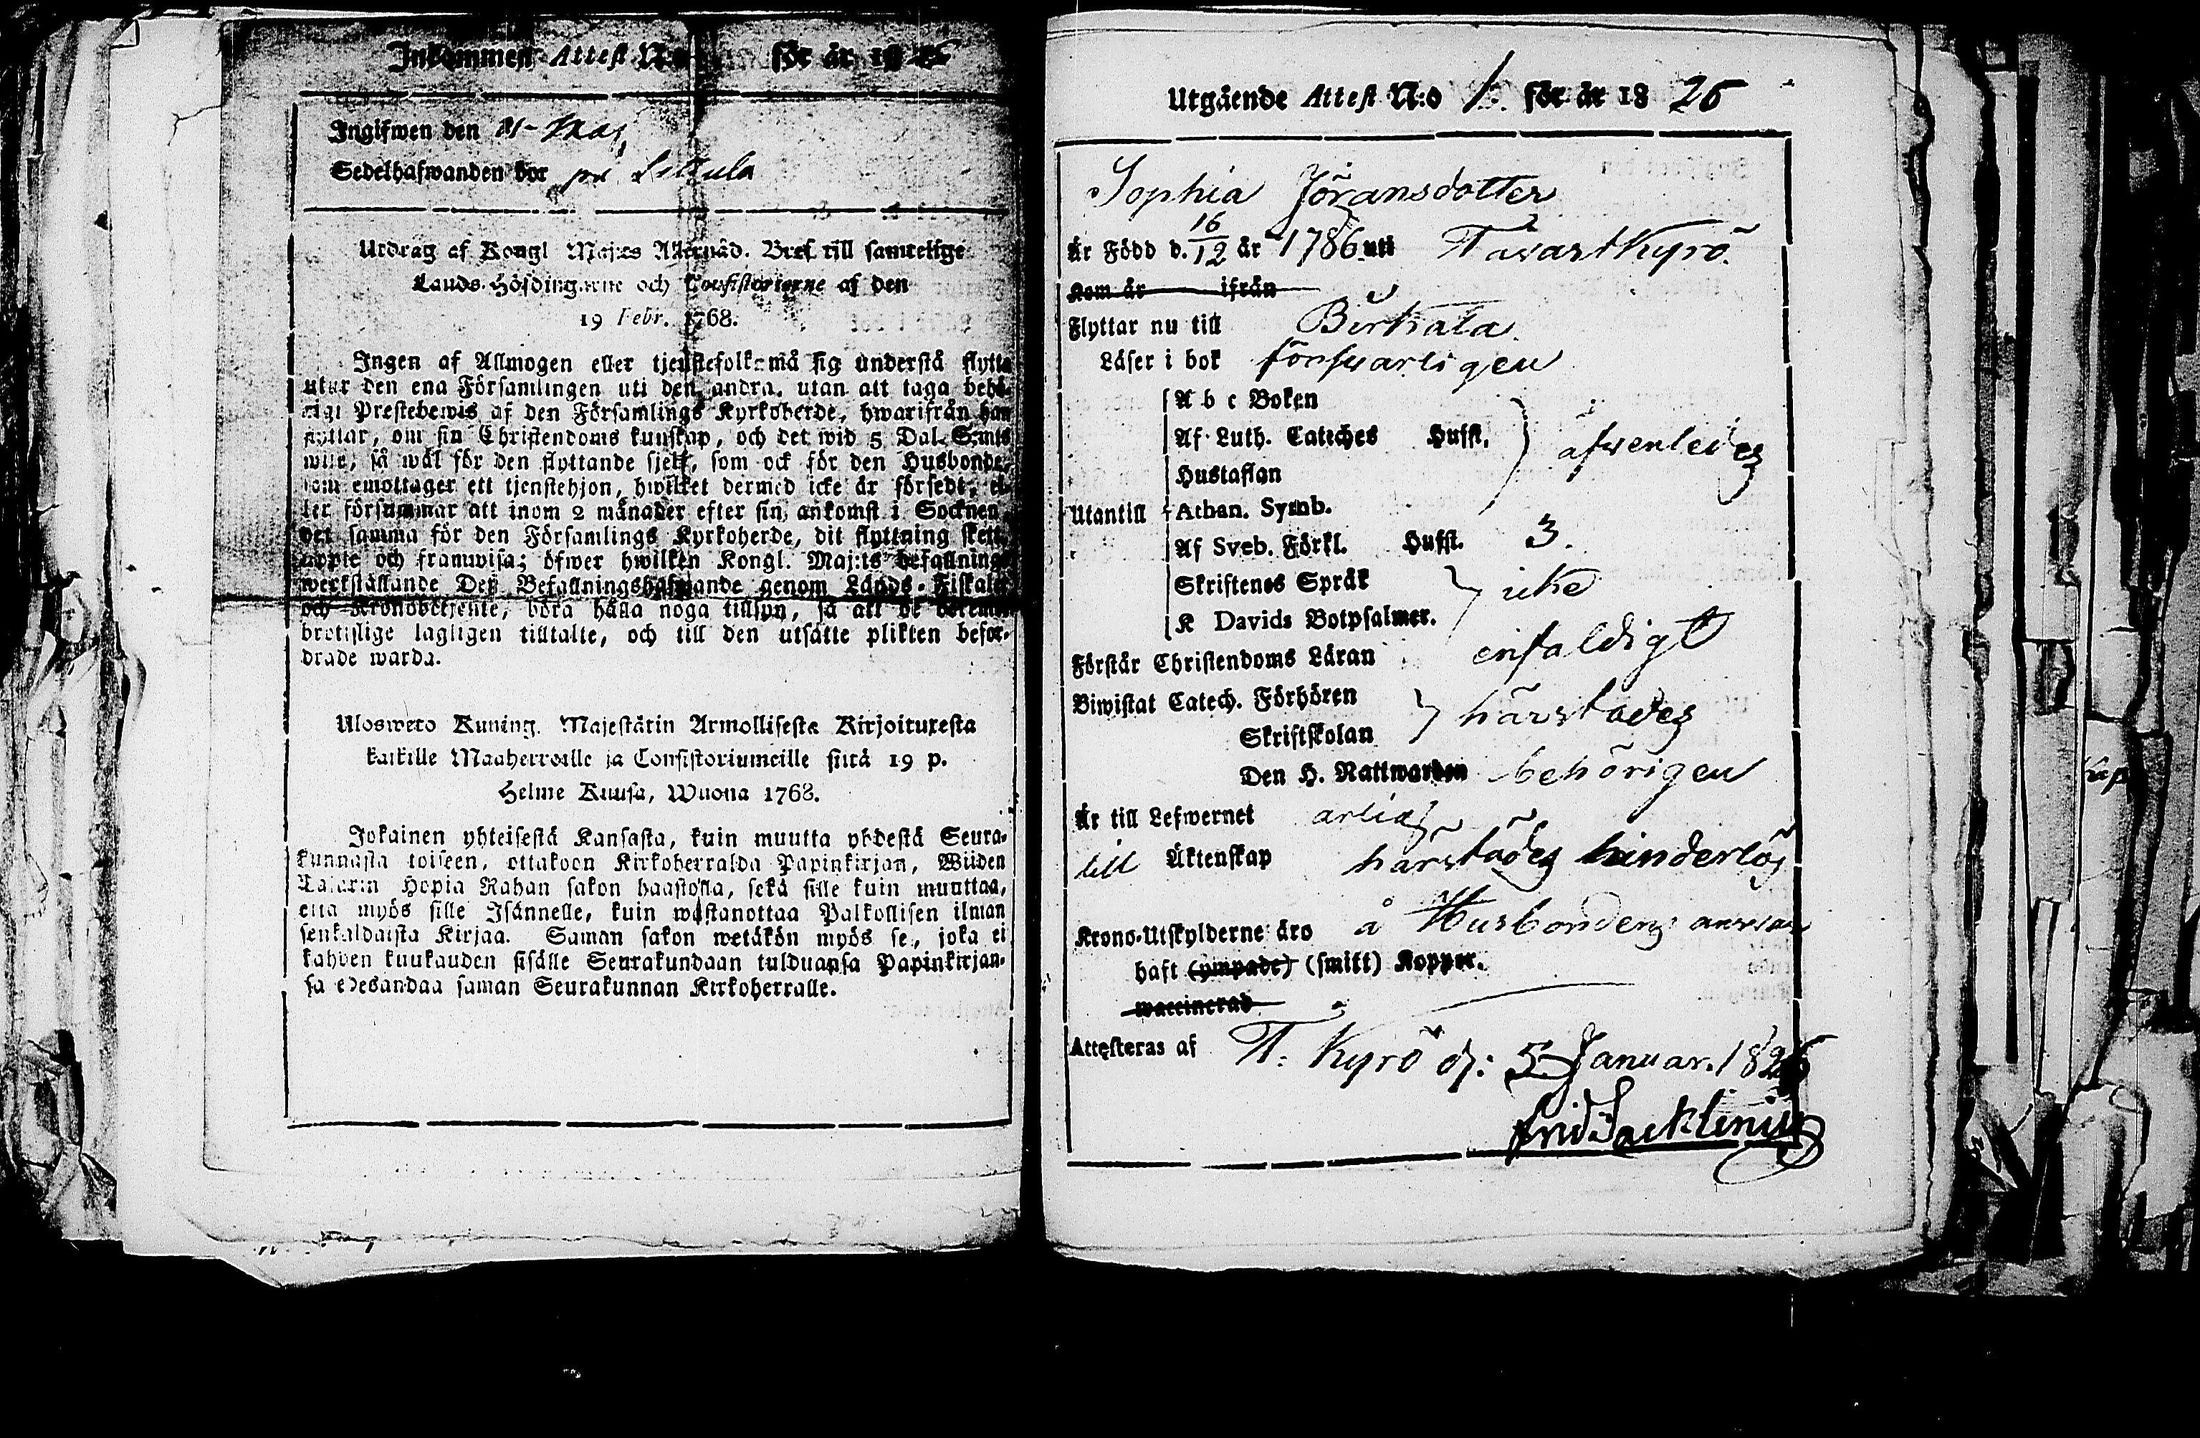 Inkommen Attest N:o för år 18
Ingifwen den
Sedelhafwanden bor på
Utdrag af Kongl Maj:ts Allernåd. Bref till samtelige
Lands-Höfdingarne och Consistorierne af den
19 Febr. 1768.
Ingen af Allmogen eller tjenstefolk må sig understå flytta
utur den ena Församlingen uti den andra, utan att taga behö-
rigt Prestebewis af den Församlings Kyrkoherde, hwarifrån han
flyttar, om sin Christendoms kunskap, och det wid 5 Dal. S:mts
wite, så wäl för den flyttande sjelf, som ock för den Husbonde,
som emottager ett tjenstehjon, hwilket dermed icke är försedt, el-
ler försummar att inom 2 månader efter sin ankomst i Socknen,
det samma för den Församlings Kyrkoherde, dit flyttning skett,
uppte och framwisa; öfwer hwilken Kongl. Maj:ts befallnings
werkställande Deß Befallningshafwande genom Lands-Fiskaler
och Kronobetjente, böra hålla noga tillsyn, så att de
brottslige lagligen tilltalte, och till den utsatte plikten befor-
drade warda.
Ulosweto Kuning. Majestätin Armollisesta Kirjoituxesta
kaikille Maaherroille ja Consistoriumeille siitä 19 p.
Helme Kuusa, Wuona 1768.
Jokainen yhteisestä Kansasta, kuin muutta yhdestä Seura-
kunnasta toiseen, ottakoon Kirkoherralda Papinkirjan, Wiiden
Talarin Hopia Rahan sakon haastolla, sekä sille kuin muuttaa,
että myös sille Isännelle, kuin wastanottaa Palkollisen ilman
senkaldaista Kirjaa. Saman sakon wetäkön myös se, joka ei
kahden kuukauden sisälle Seurakundaan tulduansa Papinkirjan-
sa edesandaa saman Seurakunnan Kirkoherralle.
Utgående Attest N:o 1. för år 18 26
Sophia Jöransdotter
Är Född d. 16/12 år 1786 uti Tavastkyrö.
Kom år ifrån
Flyttar nu till Birkala.
Läser i bok försvarligen
A b c Boken
Af Luth. Cateches Hufst. äfvenledes
Hustaflan
Utantill Athan. Symb.
Af Sveb. Förkl. Hufst. 3.
Skriftenes Språk icke
K Davids Botpsalmer.
Förstår Christendoms Läran enfaldigt
Biwistat Catech. Förhören härstädes
Skriftskolan
Den H. Nattwarden behörigen
Är till Lefwernet ärlig
till Äktenskap härstädes hinderlös
Krono-Utskylderne äro å Husbondens ansvar
haft (ympade) (smitt) Koppor.
waccinerad
Attesteras af T: Kyrö d: 5 Januar. 1826